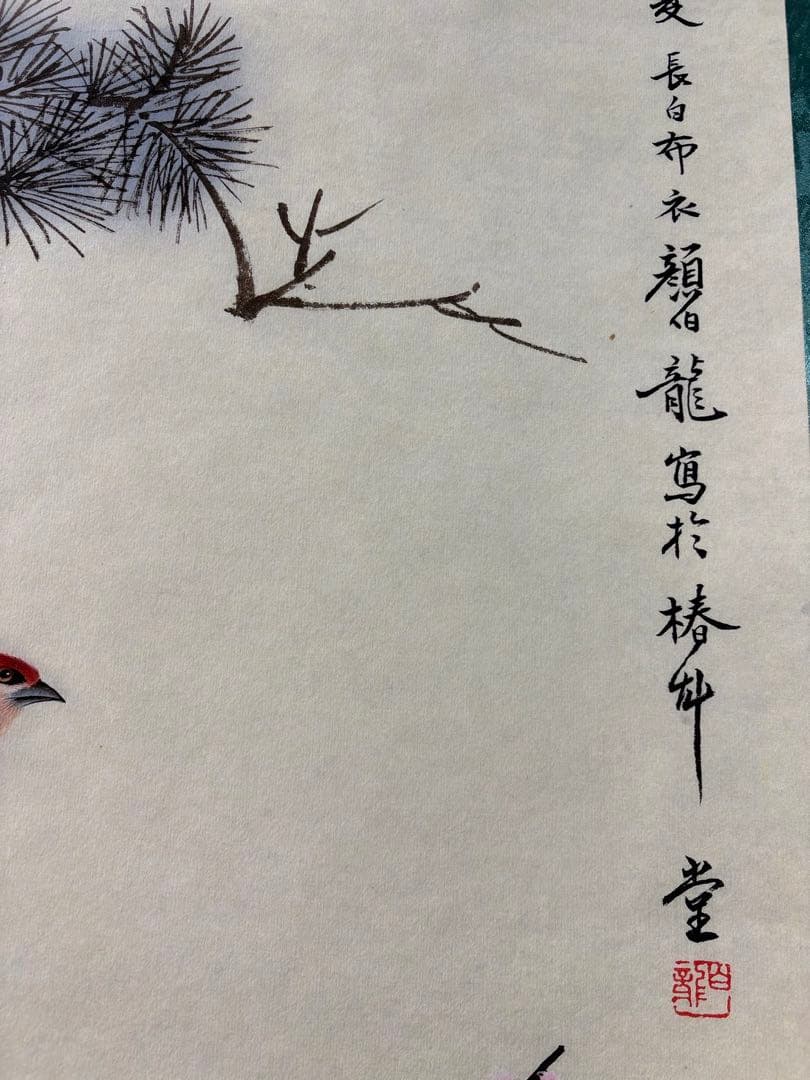 長白布衣顏伯龍寫於椿艸堂